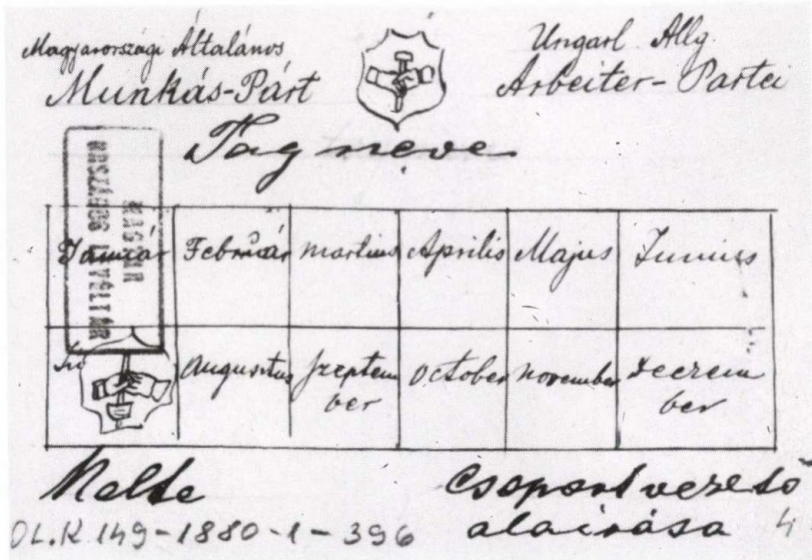 Magyarországi Általános
Munkás-Párt
Ungarl. Allg.
Arbeiter-Partei
Tag neve
MAGYAR
ORSZÁGOS LEVÉLTÁR
Január Február Martius Aprilis Majus Junius
Augustus Szeptem October November Deczem
ber ber
Kelte Csoportvezető
aláirása
OL.K 149-1880-1-396 4